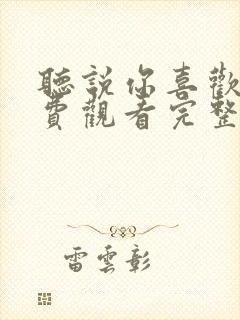 聽說你喜歡
費觀看完整
雷雲彰